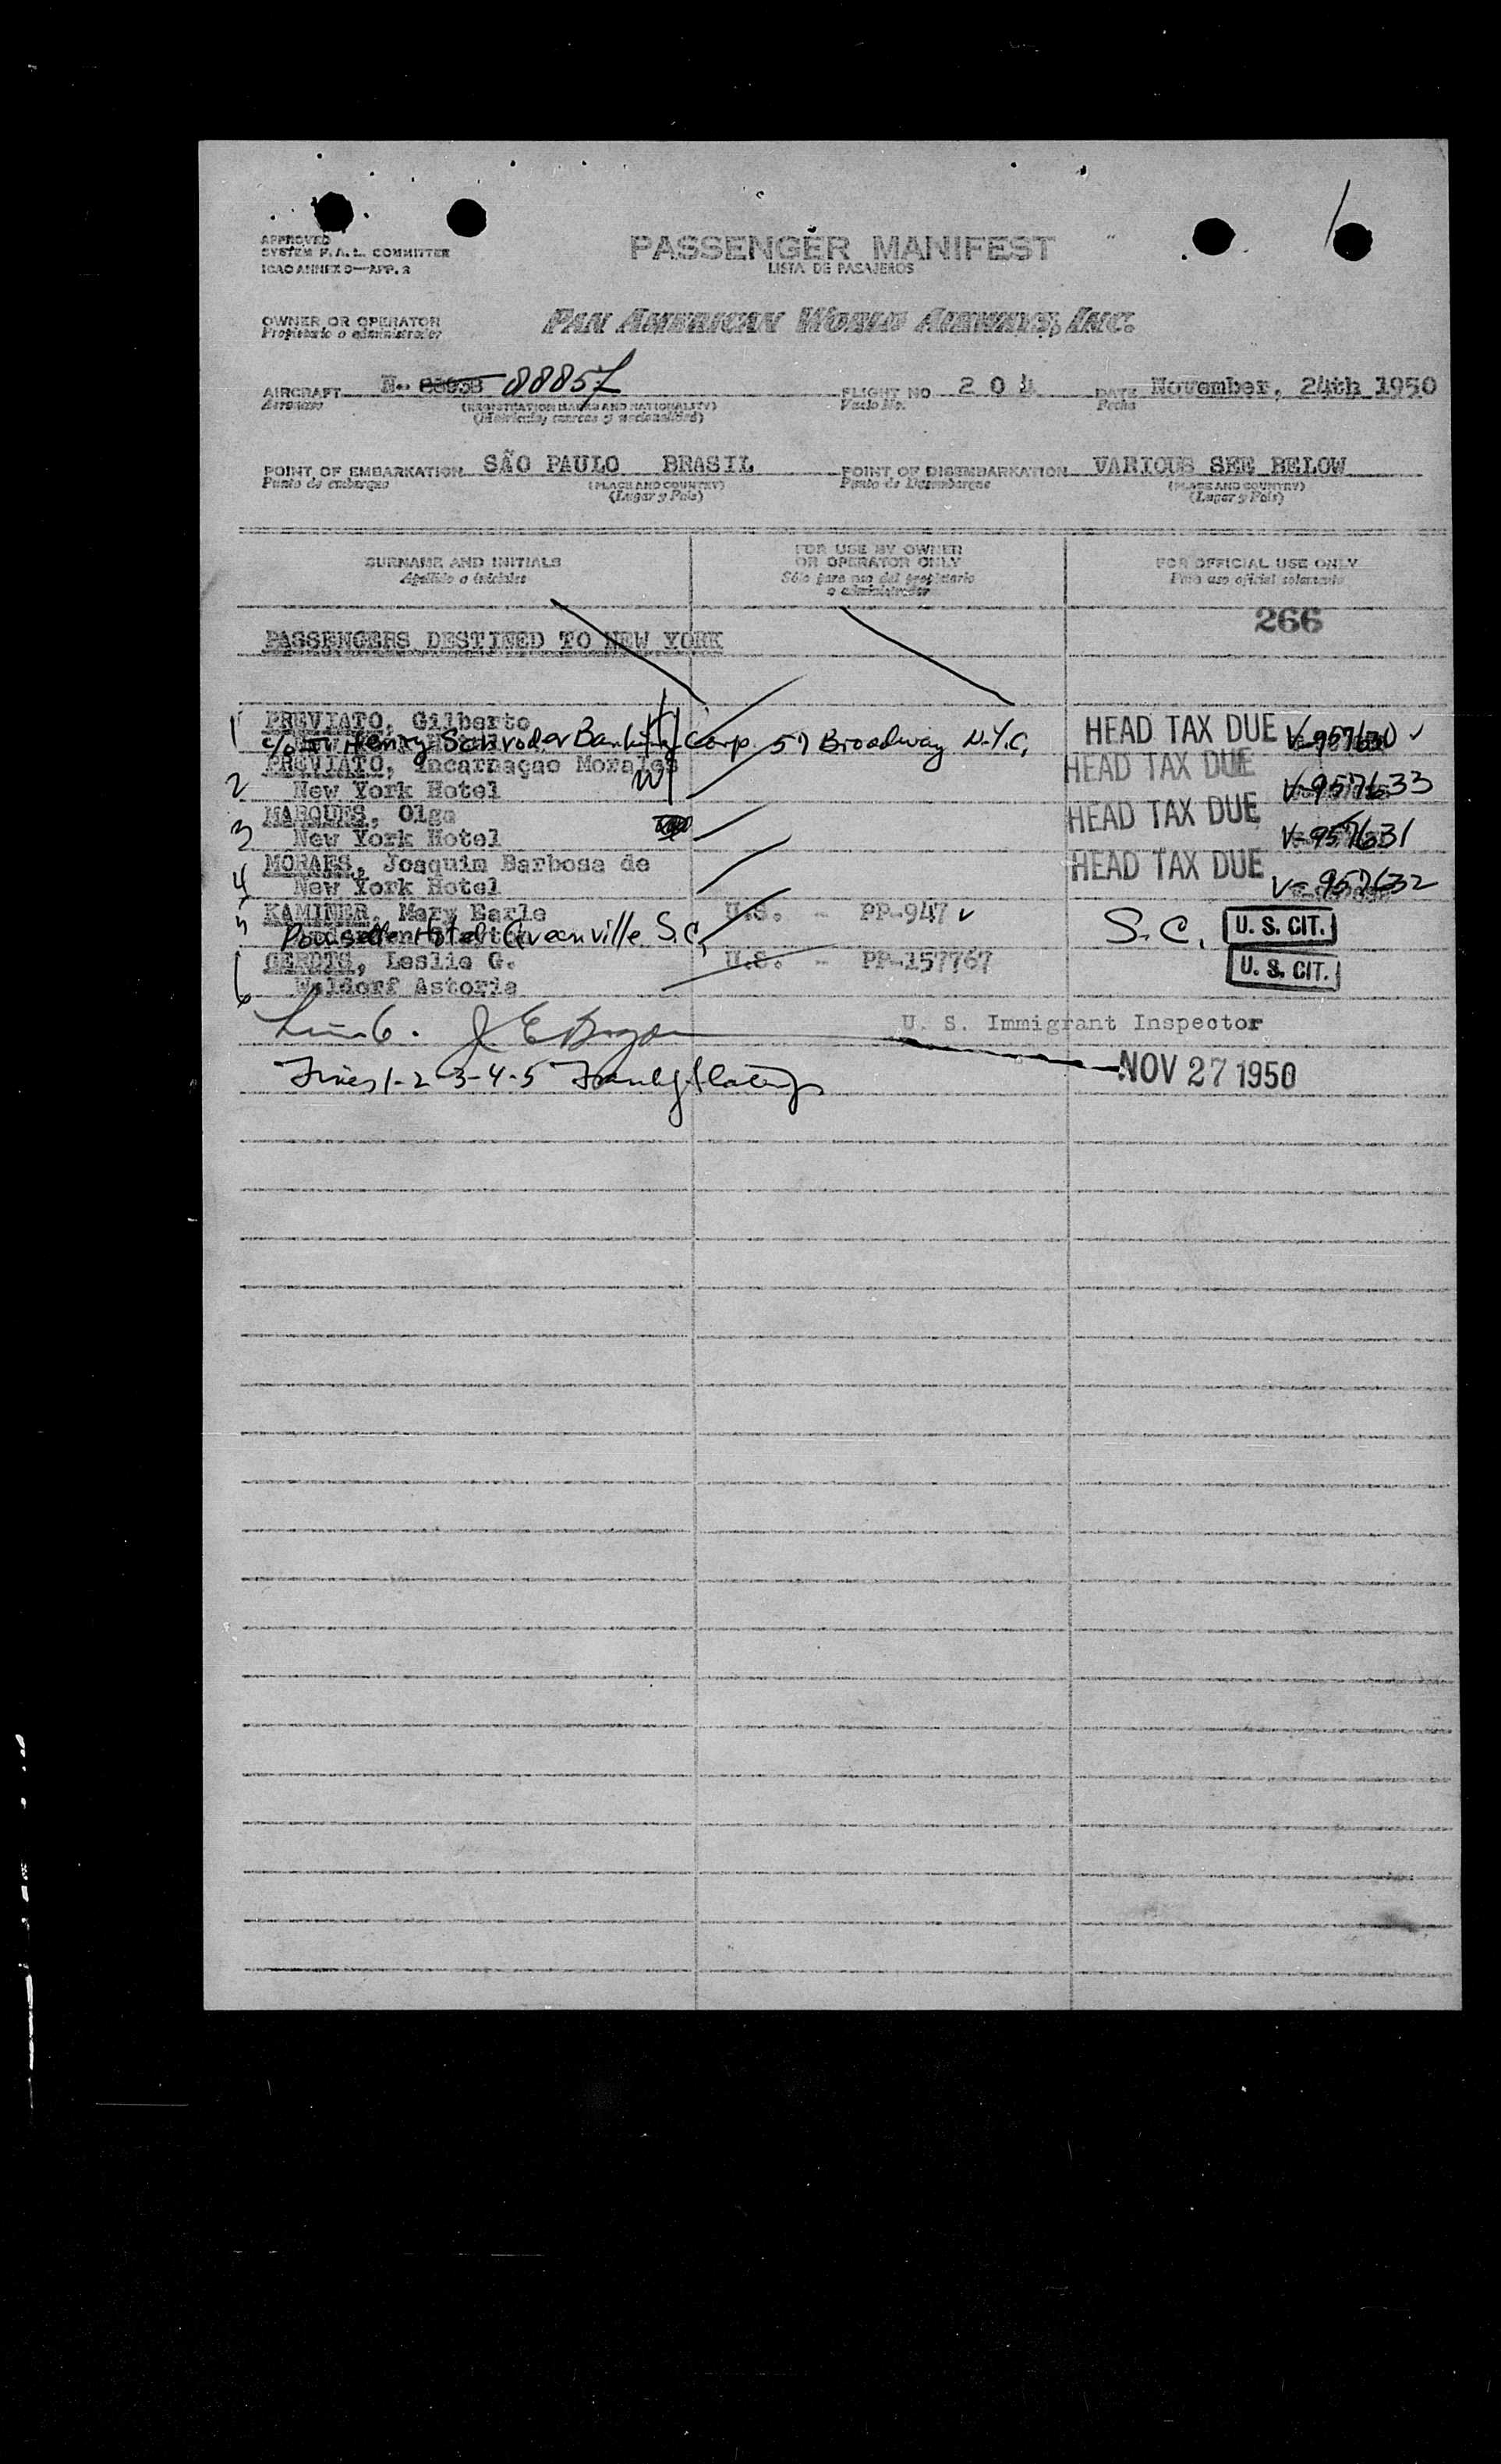 APPROVED
SYSTEM F.A.L. COMMITTEE
ICAO ANNEX 9—APP. 3
PASSENGER MANIFEST
LISTA DE PASAJEROS
OWNER OR OPERATOR
Propietario o administrador
PAN AMERICAN WORLD AIRWAYS, INC.
AIRCRAFT N.. 88857 FLIGHT NO 204 DATE November, 24th 1950
Aeronave (REGISTRATION MARKS AND NATIONALITY) Vuelo No. Fecha
(Matricula, marcas y nacionalidad)
POINT OF EMBARKATION SÃO PAULO BRASIL POINT OF DISEMBARKATION VARIOUS SEE BELOW
Punto de embarque (PLACE AND COUNTRY) Punto de Desembarque (PLACE AND COUNTRY)
(Lugar y Pais) (Lugar y Pais)
SURNAME AND INITIALS FOR USE BY OWNER OR OPERATOR ONLY FOR OFFICIAL USE ONLY
Apellido e iniciales Sólo para uso del propietario o administrador Para uso oficial solamente
266
PASSENGERS DESTINED TO NEW YORK
1 PREVIATO, Gilberto HEAD TAX DUE V-957630
c/o Henry Schroder Banking Corp. 57 Broadway N.Y.C.
PREVIATO, Incarnaçao Morales HEAD TAX DUE
2 New York Hotel V-957633
MARQUES, Olga HEAD TAX DUE
3 New York Hotel V-957631
MORAES, Joaquim Barbosa de HEAD TAX DUE
4 New York Hotel V-957632
5 KAMINER, Mary Earle U.S. - PP-947 S.C. U. S. CIT.
Hotel Greenville S.C.
Leslie G. U.S. - PP-157767 U. S. CIT.
6 Waldorf Astoria
Line 6. J. E. U. S. Immigrant Inspector
Lines 1-2-3-4-5 NOV 27 1950